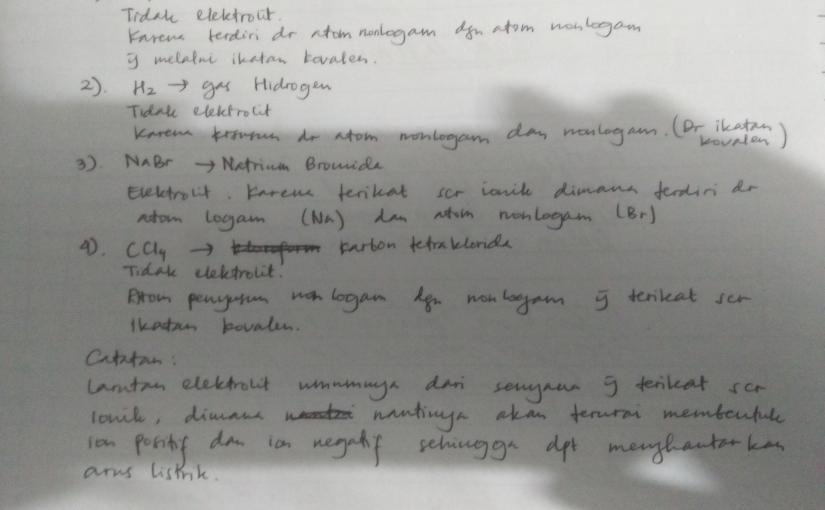 Tidak elektrolit.
Karena terdiri dr atom nonlogam dgn atom nonlogam
yg melalui ikatan kovalen.
2). H₂ → gas Hidrogen
Tidak elektrolit
Karena tersusun dr atom nonlogam dan nonlogam. (Dr ikatan kovalen)
3). NaBr → Natrium Bromida
Elektrolit. Karena terikat scr ionik dimana terdiri dr
atom logam (Na) dan atom nonlogam (Br)
4). CCl4 → kloroform karbon tetraklorida
Tidak elektrolit.
Atom penyusun non logam dgn non logam yg terikat scr
Ikatan kovalen.
Catatan :
Larutan elektrolit umumnya dari senyawa yg terikat scr
Ionik, dimana nantinya akan terurai membentuk
ion positif dan ion negatif sehingga dpt menghantarkan
arus listrik.